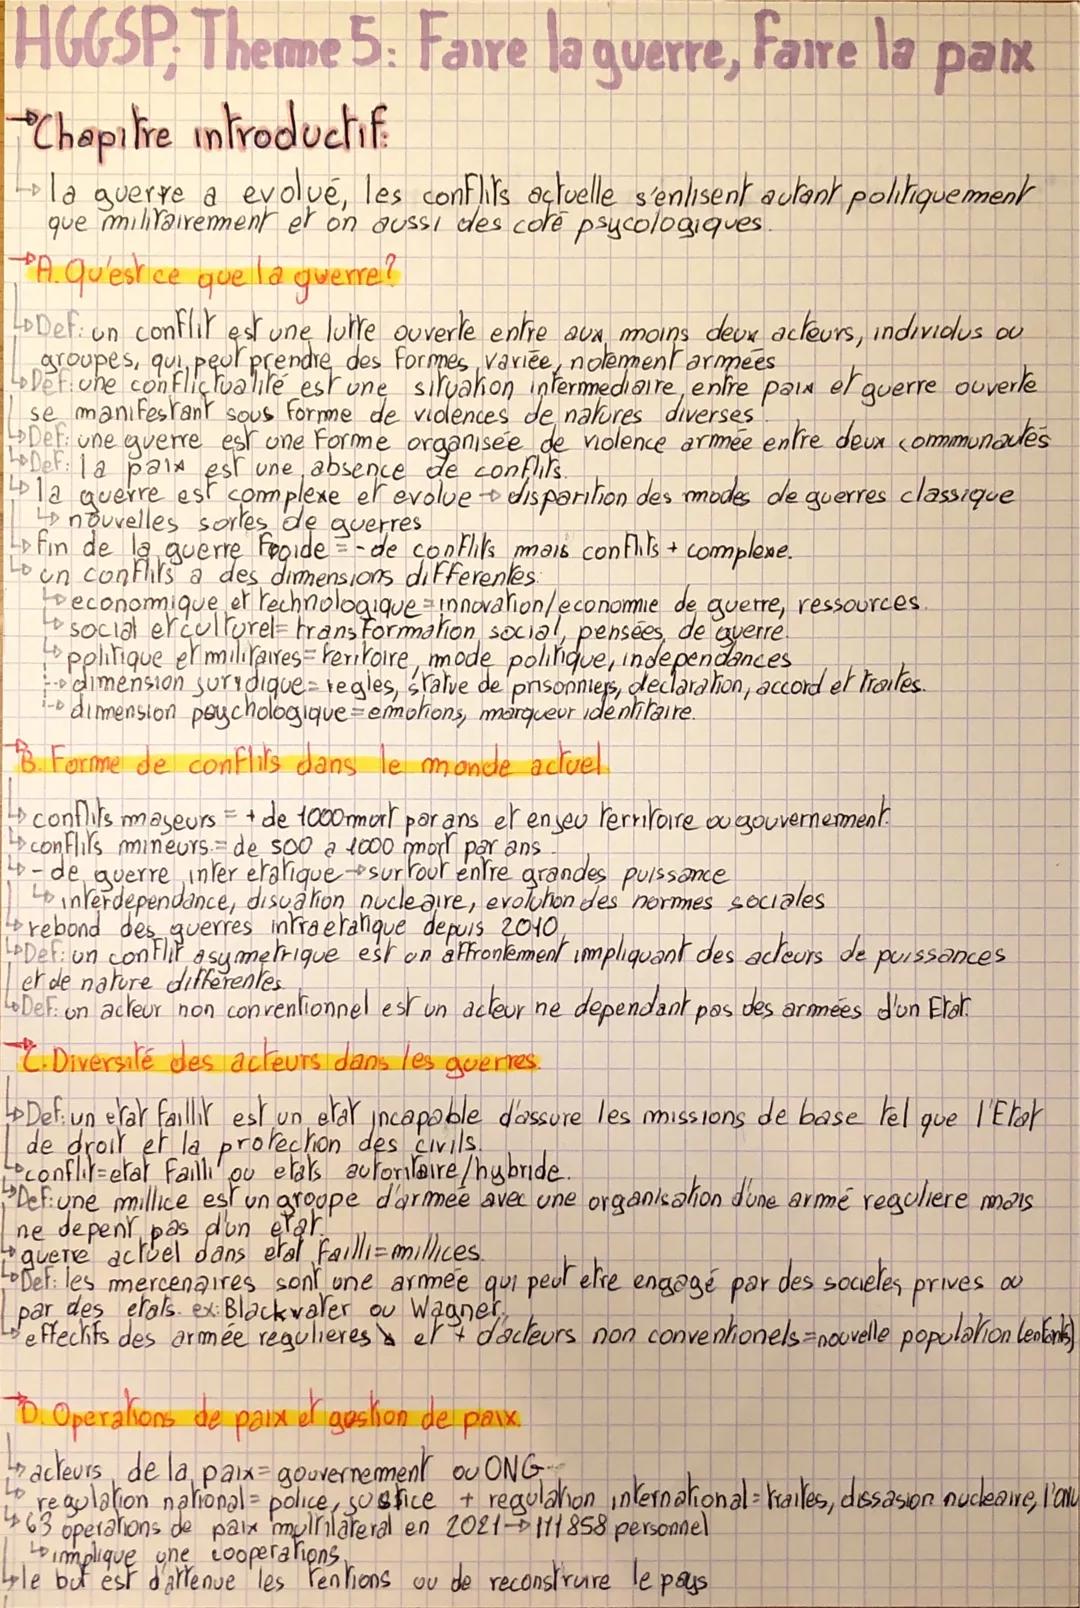 HGGSP; Theme 5: Faire la guerre, Faire la paix
→Chapitre introductif:
↳ la guerre a evolué, les conflits actuelle s'enlisent autant politiquement
que militairement et on aussi des coté psycologiques.
→A. Qu'est ce que la guerre?
↳Def: un conflit est une lutte ouverte entre aux moins deux acteurs, individus ou
groupes, qui peut prendre des formes variée, notement armées
↳Def: une conflictualité est une situation intermediaire entre paix et guerre ouverte
se manifestant sous forme de violences de natures diverses
↳Def: une guerre est une forme organisée de violence armée entre deux communautés
↳Def: la paix est une absence de conflits.
↳la guerre est complexe et evolue → disparition des modes de guerres classique
↳ nouvelles sortes de guerres
↳ fin de la guerre froide = - de conflits mais conflits + complexe.
↳ un conflits a des dimensions differentes:
↳ economique et technologique = innovation/economie de guerre, ressources.
↳ social et culturel = transformation social, pensées de guerre.
↳ politique et militaires = teritoire, mode politique, independances
→ dimension juridique = regles, statue de prisonniers, declaration, accord et traites.
→ dimension psychologique = emotions, marqueur identitaire.
→B. Forme de conflits dans le monde actuel
↳ conflits majeurs = + de 1000 mort par ans et enjeu territoire ou gouvernement.
↳ conflits mineurs = de 500 a 1000 mort par ans.
↳ - de guerre inter etatique → surtout entre grandes puissance
↳ interdependance, disuation nucleaire, evolution des normes sociales
↳ rebond des guerres intraetatique depuis 2010
↳Def: un conflit asymetrique est un affrontement impliquant des acteurs de puissances
et de nature différentes.
↳Def: un acteur non conventionnel est un acteur ne dependant pas des armées d'un Etat.
→C. Diversité des acteurs dans les guerres.
↳Def: un etat faillit est un etat incapable d'assure les missions de base tel que l'Etat
de droit et la protection des civils.
↳conflit = etat failli ou etats autoritaire/hybride.
↳Def: une millice est un groupe d'armée avec une organisation d'une armé reguliere mais
ne depent pas d'un etat.
↳ guerre actuel dans etat failli = millices.
↳Def: les mercenaires sont une armée qui peut etre engagé par des societes prives ou
par des etats. ex: Blackwater ou Wagner.
↳ effectifs des armée regulieres ↘ et + d'acteurs non conventionels = nouvelle population (enfants)
→D. Operations de paix et gestion de paix.
↳ acteurs de la paix = gouvernement ou ONG...
↳ regulation national = police, justice + regulation international = traites, dissasion nucleaire, l'onu
↳ 63 operations de paix multilateral en 2021 → 111 858 personnel
↳ implique une cooperations
↳ le but est d'attenue les tentions ou de reconstruire le pays